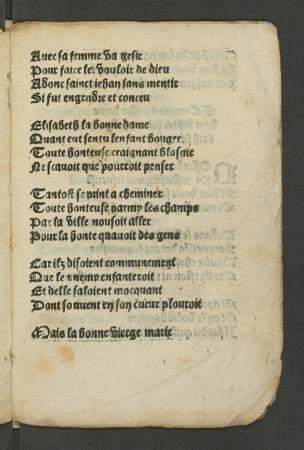 Auec sa femme va gesir
Pour faire le vouloir de dieu
Adonc sainct iehan sans mentir
Si fut engendre et conceu
Elisabeth la bonne dame
Quant eut sentu lenfant bouger
Toute honteuse craignant blasme
Ne scauoit que pourroit penser
Tantost se print a cheminer
Toute honteuse parmy les champs
Par la ville nousoit aller
Pour la honte quauoit des gens
Car ilz disoient communement
Que le enfanteroit
Et delle saloient mocquant
Dont souuent en son cueur plouroit
Mais la bonne vierge marie